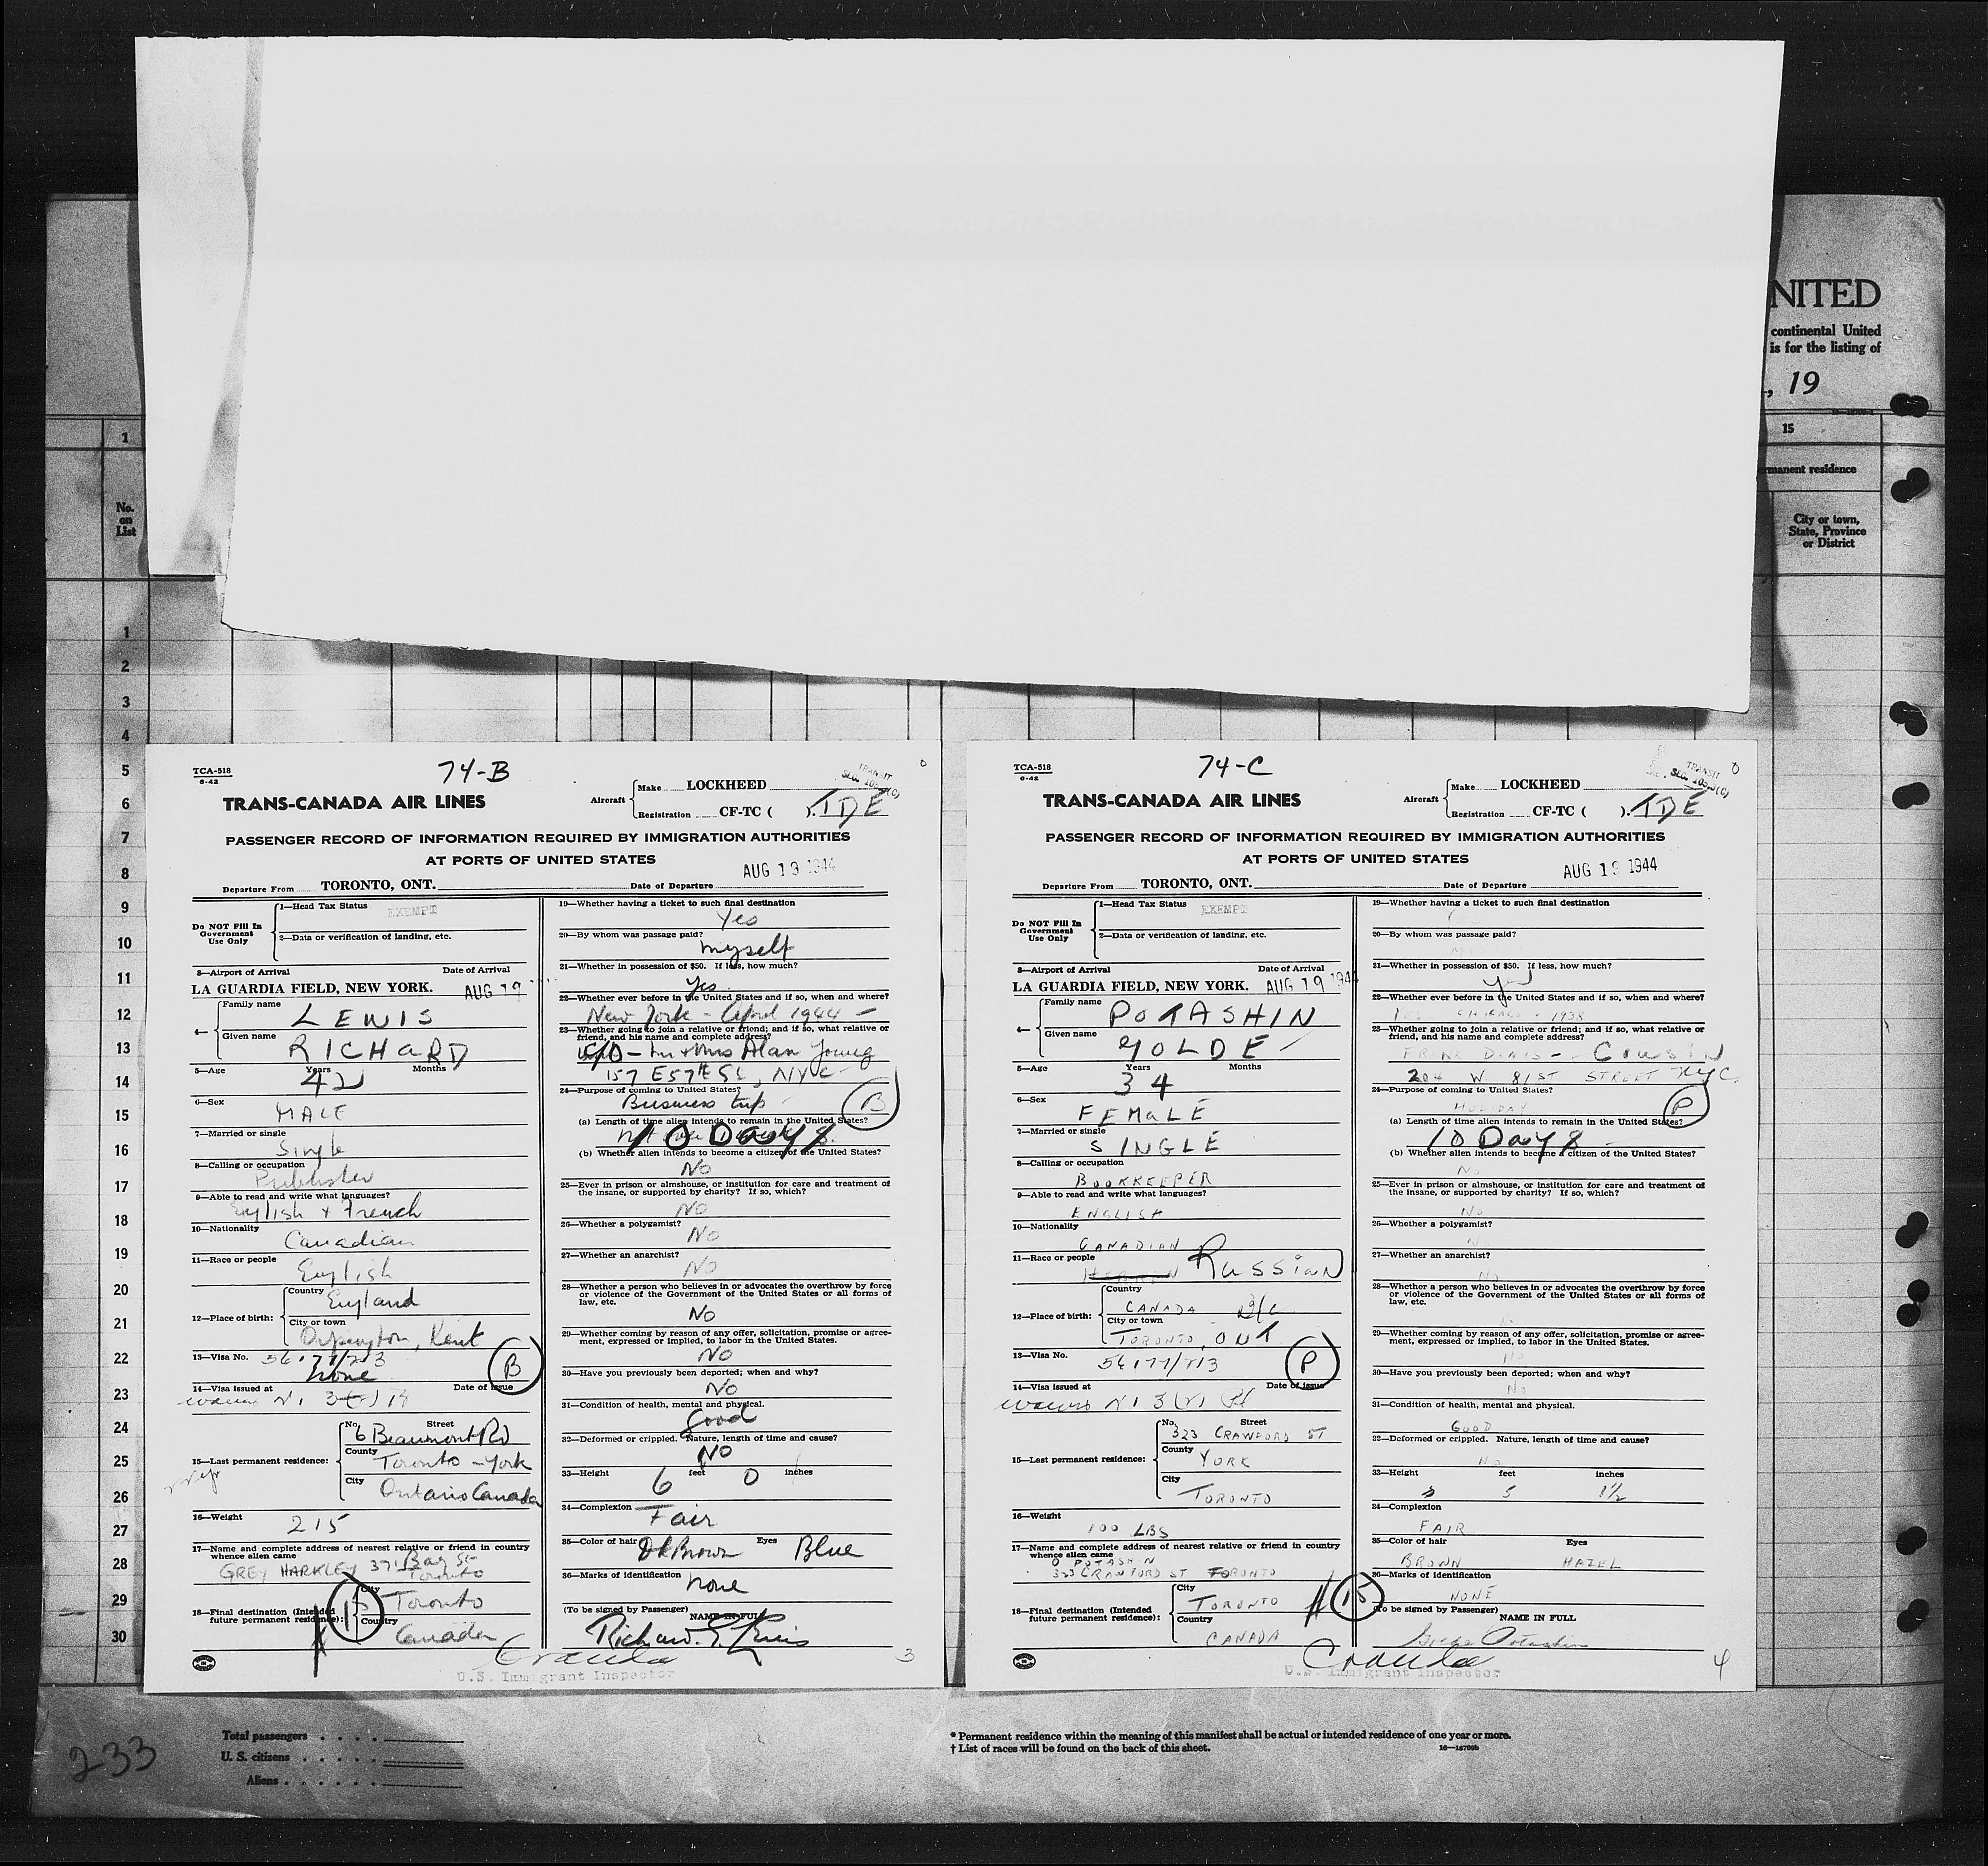 NITED
continental United
is for the listing of
, 19
15
manent residence
City or town,
State, Province
or District
1
No.
on
List
1
2
3
4
5
6
7
8
9
10
11
12
13
14
15
16
17
18
19
20
21
22
23
24
25
26
27
28
29
30
TCA-518
6-42
74-B
TRANSIT
TRANS-CANADA AIR LINES
Aircraft
Make LOCKHEED
Registration CF-TC ( ). TDE
PASSENGER RECORD OF INFORMATION REQUIRED BY IMMIGRATION AUTHORITIES
AT PORTS OF UNITED STATES
AUG 19 1944
Departure From TORONTO, ONT. Date of Departure
Do NOT Fill In
Government
Use Only
1—Head Tax Status EXEMPT
2—Data or verification of landing, etc.
3—Airport of Arrival Date of Arrival
LA GUARDIA FIELD, NEW YORK. AUG 19
4—
Family name LEWIS
Given name RICHARD
5—Age Years Months
42
6—Sex
MALE
7—Married or single
Single
8—Calling or occupation
Publisher
9—Able to read and write what languages?
English + French
10—Nationality
Canadian
11—Race or people
English
12—Place of birth:
Country England
City or town
Orpington, Kent
13—Visa No.
none
B
14—Visa issued at Date of issue
15—Last permanent residence:
No. Street
6 Beaumont Rd
County
Toronto - York
City
Ontario Canada
16—Weight
215
17—Name and complete address of nearest relative or friend in country
whence alien came
GREY HARKLEY 371 Bay St
Toronto
18—Final destination (Intended
future permanent residence):
City
Toronto
Country
Canada
15
19—Whether having a ticket to such final destination
Yes
20—By whom was passage paid?
myself
21—Whether in possession of $50. If less, how much?
Yes
22—Whether ever before in the United States and if so, when and where?
New York - April 1944 -
23—Whether going to join a relative or friend; and if so, what relative or
friend, and his name and complete address?
c/o - Mr + Mrs Alan Young
157 E 57th St, NYC
24—Purpose of coming to United States?
Business trip
B
(a) Length of time alien intends to remain in the United States?
10 Days
(b) Whether alien intends to become a citizen of the United States?
No
25—Ever in prison or almshouse, or institution for care and treatment of
the insane, or supported by charity? If so, which?
No
26—Whether a polygamist?
No
27—Whether an anarchist?
No
28—Whether a person who believes in or advocates the overthrow by force
or violence of the Government of the United States or all forms of
law, etc.
No
29—Whether coming by reason of any offer, solicitation, promise or agree-
ment, expressed or implied, to labor in the United States.
No
30—Have you previously been deported; when and why?
No
31—Condition of health, mental and physical.
Good
32—Deformed or crippled. Nature, length of time and cause?
No
33—Height 6 feet 0 inches
34—Complexion
Fair
35—Color of hair Dk Brown Eyes Blue
36—Marks of identification
none
(To be signed by Passenger) NAME IN FULL
Richard Lewis
U.S. Immigrant Inspector
3
TCA-518
6-42
74-C
TRANSIT
TRANS-CANADA AIR LINES
Aircraft
Make LOCKHEED
Registration CF-TC ( ). TDE
PASSENGER RECORD OF INFORMATION REQUIRED BY IMMIGRATION AUTHORITIES
AT PORTS OF UNITED STATES
AUG 19 1944
Departure From TORONTO, ONT. Date of Departure
Do NOT Fill In
Government
Use Only
1—Head Tax Status EXEMPT
2—Data or verification of landing, etc.
3—Airport of Arrival Date of Arrival
LA GUARDIA FIELD, NEW YORK. AUG 19 1944
4—
Family name POTASHIN
Given name GOLDE
5—Age Years Months
34
6—Sex
FEMALE
7—Married or single
SINGLE
8—Calling or occupation
BOOKKEEPER
9—Able to read and write what languages?
ENGLISH
10—Nationality
CANADIAN
11—Race or people
Russian
12—Place of birth:
Country
CANADA
City or town
TORONTO, ONT
13—Visa No.
P
14—Visa issued at Date of issue
15—Last permanent residence:
No. Street
323 CRAWFORD ST
County
YORK
City
TORONTO
16—Weight
100 LBS
17—Name and complete address of nearest relative or friend in country
whence alien came
O POTASHIN
323 CRAWFORD ST TORONTO
18—Final destination (Intended
future permanent residence):
City
TORONTO
Country
CANADA
15
19—Whether having a ticket to such final destination
20—By whom was passage paid?
21—Whether in possession of $50. If less, how much?
Yes
22—Whether ever before in the United States and if so, when and where?
CHICAGO - 1938
23—Whether going to join a relative or friend; and if so, what relative or
friend, and his name and complete address?
FRANK - Cousin
204 W. 81ST STREET NYC
24—Purpose of coming to United States?
HOLIDAY
P
(a) Length of time alien intends to remain in the United States?
10 Days
(b) Whether alien intends to become a citizen of the United States?
No
25—Ever in prison or almshouse, or institution for care and treatment of
the insane, or supported by charity? If so, which?
No
26—Whether a polygamist?
No
27—Whether an anarchist?
No
28—Whether a person who believes in or advocates the overthrow by force
or violence of the Government of the United States or all forms of
law, etc.
29—Whether coming by reason of any offer, solicitation, promise or agree-
ment, expressed or implied, to labor in the United States.
No
30—Have you previously been deported; when and why?
No
31—Condition of health, mental and physical.
GOOD
32—Deformed or crippled. Nature, length of time and cause?
No
33—Height feet inches
5 1½
34—Complexion
FAIR
35—Color of hair Eyes
BROWN HAZEL
36—Marks of identification
NONE
(To be signed by Passenger) NAME IN FULL
Golde Potashin
U.S. Immigrant Inspector
4
233
Total passengers
U. S. citizens
Aliens
* Permanent residence within the meaning of this manifest shall be actual or intended residence of one year or more.
† List of races will be found on the back of this sheet.